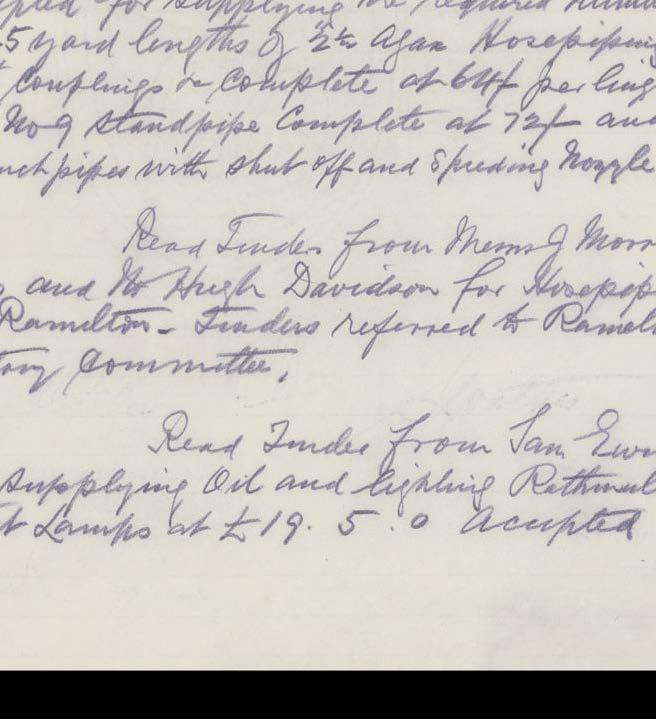 for supplying the required
5 yard lengths of 2½ Ajax Hosepiping
Couplings complete at 64/ per leng
No 9 Standpipe Complete at 72/ and
nch pipes with shut off and Spreading Nozzle
Read Tender from Messrs J Morr
and Mr Hugh Davidson for Hosepip
Ramelton - Tenders referred to Ramel
tory Committee,
Read Tender from Sam Ewi
supplying Oil and lighting Rathmul
t Lamps at £19. 5. 0 Accepted